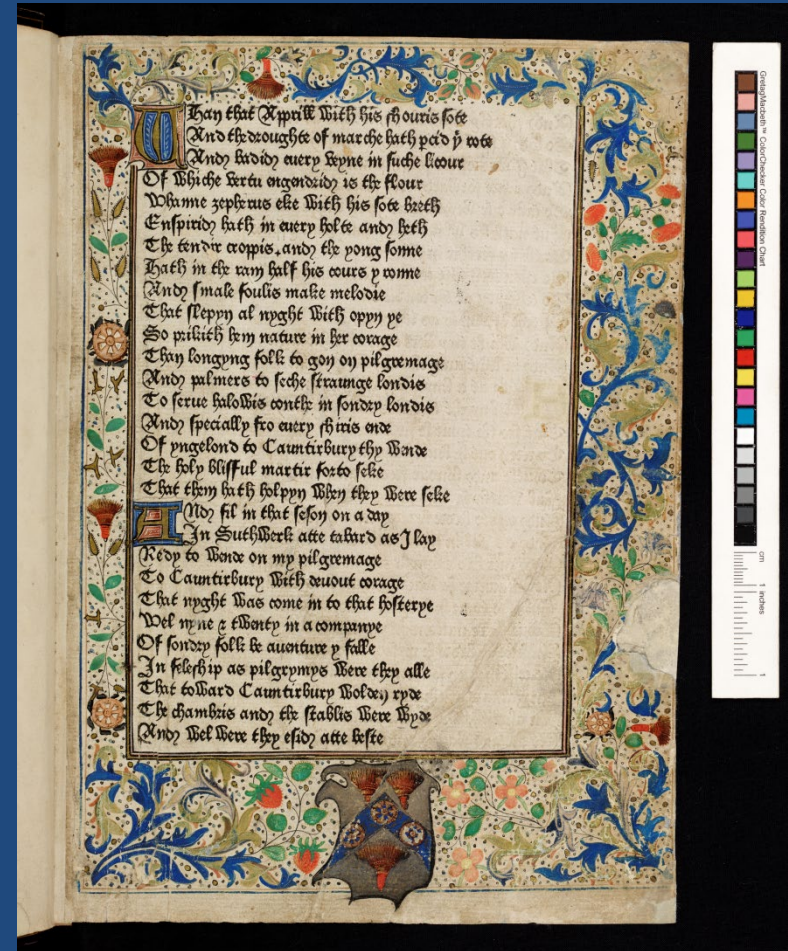 Whan that Apprill with his shouris sote
And the droughte of marche hath percid þe rote
And badid euery veyne in suche licour
Of whiche vertu engendrid is the flour
Whanne zepherus eke with his sote breth
Enspirid hath in euery holte and heth
The tendir croppis, and the yong sonne
Hath in the ram half his cours y ronne
And smale foulis make melodie
That slepyn al nyght with opyn ye
So prikith hem nature in her corage
Than longyng folk to gon on pilgremage
And palmers to seche straunge londis
To serue halowis couthe in sondry londis
And specially fro euery shiris ende
Of yngelond to Cauntirbury thy wende
The holy blisful martir forto seke
That them hath holpyn when they were seke
And fil in that seson on a day
In Suthwerk atte tabard as I lay
Redy to wende on my pilgremage
To Cauntirbury with deuout corage
That nyght was come in to that hosterye
Wel nyne & twenty in a companye
Of sondry folk be auenture y falle
In feleship as pilgrymys were they alle
That toward Cauntirbury wolden ryde
The chambris and the stablis were wyde
And wel were they esid atte beste
GretagMacbeth™ ColorChecker Color Rendition Chart
cm 1 inches 1